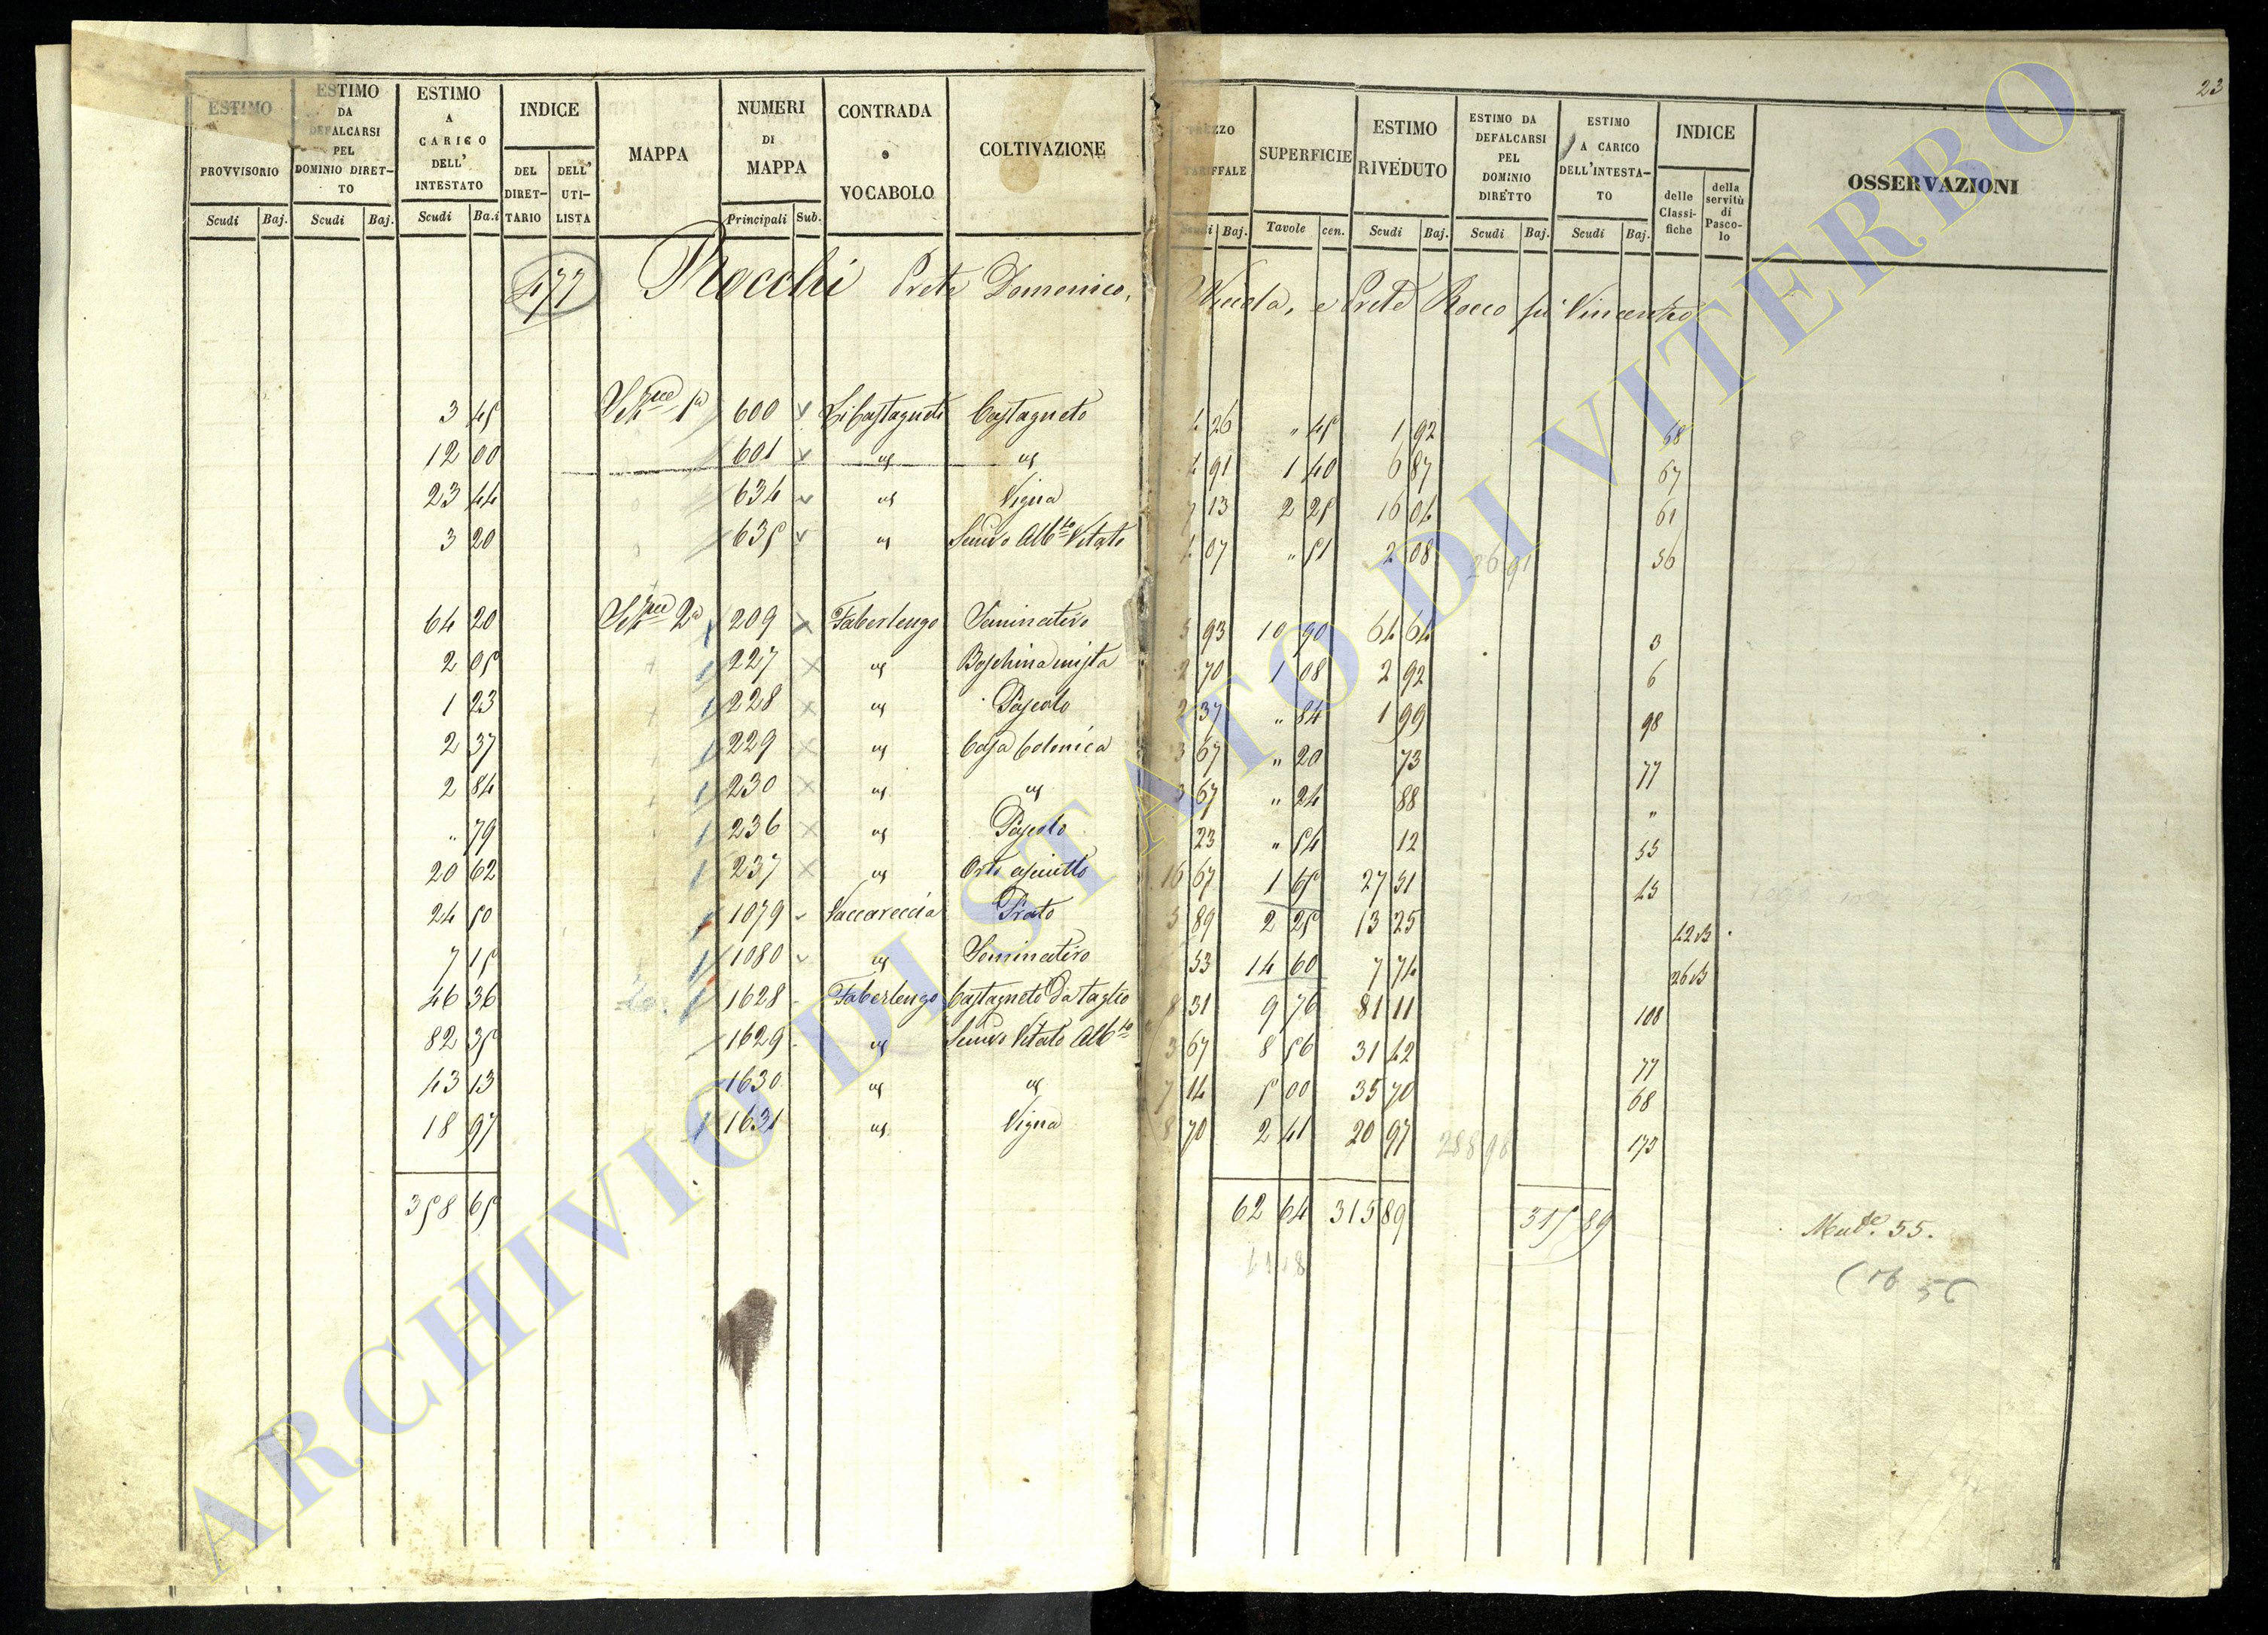 23
ESTIMO PROVVISORIO Scudi Baj.
ESTIMO DA DEFALCARSI PEL DOMINIO DIRET-TO Scudi Baj.
ESTIMO A CARICO DELL' INTESTATO Scudi Ba.i
INDICE DEL DIRET-TARIO DELL' UTI-LISTA
MAPPA
NUMERI DI MAPPA Principali Sub.
CONTRADA o VOCABOLO
COLTIVAZIONE
PREZZO TARIFFALE Scudi Baj.
SUPERFICIE Tavole cen.
ESTIMO RIVEDUTO Scudi Baj.
ESTIMO DA DEFALCARSI PEL DOMINIO DIRETTO Scudi Baj.
ESTIMO A CARICO DELL'INTESTA-TO Scudi Baj.
INDICE delle Classi-fiche della servitù di Pasco-lo
OSSERVAZIONI
477 Rocchi Prete Domenico, Nicola, e Prete Rocco fu Vincenzo
3 45 Sez.ne 1a 600 Li Castagneti Castagneto 4 26 " 45 1 92 68
12 00 601 " " 4 91 1 40 6 87 67
23 44 634 " Vigna 7 13 2 25 16 04 61
3 20 635 " Semivo Alb.to Vitato 4 07 " 51 2 08 26 91 56
64 20 Sez.ne 2a 209 Faberlengo Seminativo 5 93 10 90 64 64 3
2 05 227 " Boschina mista 2 70 1 08 2 92 6
1 23 228 " Pascolo 2 37 " 84 1 99 98
2 37 229 " Casa Colonica 3 67 " 20 73 77
2 84 230 " " 3 67 " 24 88 "
" 79 236 " Pascolo 23 " 54 12 55
20 62 237 " Orto asciutto 16 67 1 65 27 51
24 50 1079 Vaccareccia Prato 5 89 2 25 13 25
7 15 1080 " Seminativo 53 14 60 7 74
46 36 1628 Faberlengo Castagneto Da taglio 8 31 9 76 81 11 108
82 35 1629 " Semivo Vitato Alb.to 3 67 8 56 31 42 77
43 13 1630 " " 7 14 5 00 35 70 68
18 97 1631 " Vigna 8 70 2 41 20 97 288 98 173
358 65 62 64 315 89 315 89
Mut.e 55.
ARCHIVIO DI STATO DI VITERBO